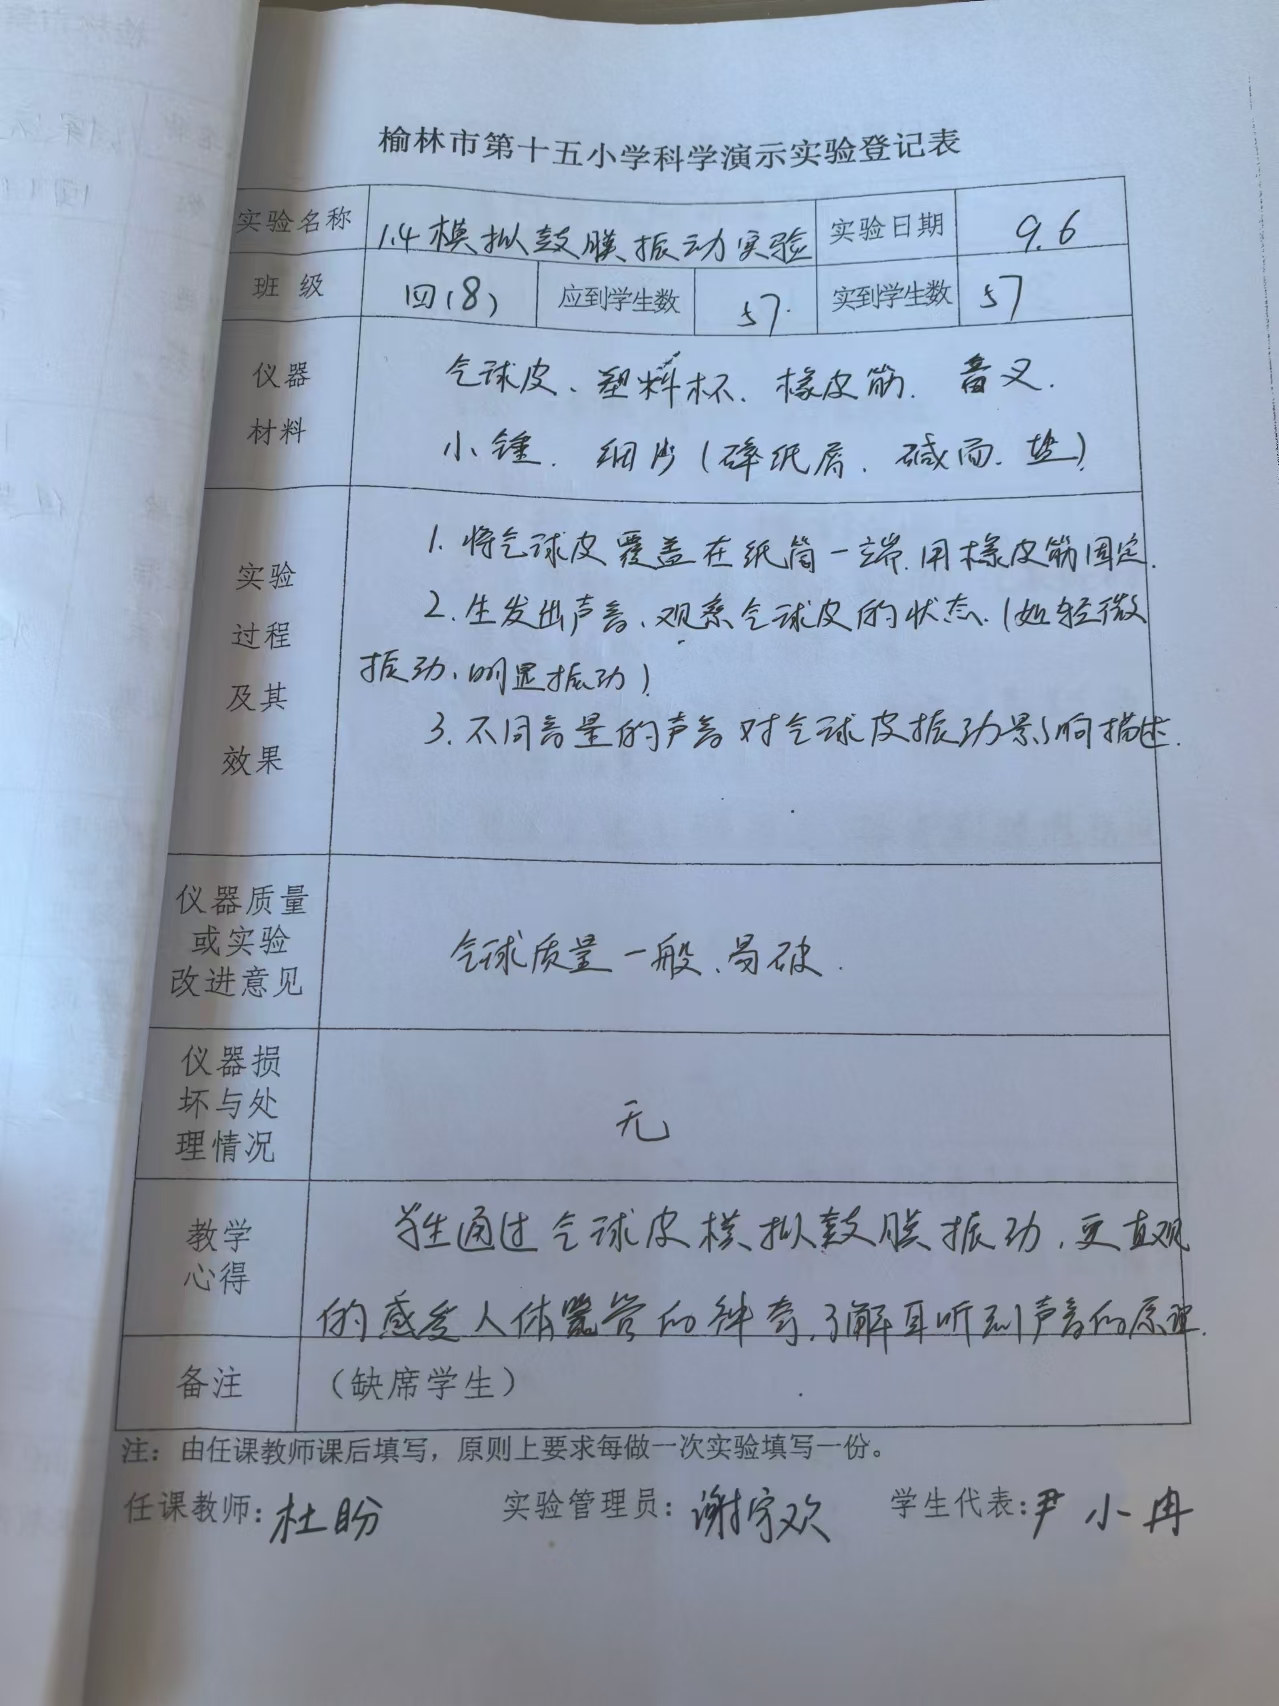 榆林市第十五小学科学演示实验登记表
实验名称 1.4模拟鼓膜振动实验 实验日期 9.6
班 级 四(8) 应到学生数 57. 实到学生数 57
仪器
材料
气球皮、塑料杯、橡皮筋、音叉.
小锤、细沙(碎纸屑、碱面、盐)
实验
过程
及其
效果
1. 将气球皮覆盖在纸筒一端.用橡皮筋固定.
2. 生发出声音、观察气球皮的状态.(如轻微
振动、明显振动)
3. 不同音量的声音对气球皮振动影响描述.
仪器质量
或实验
改进意见
气球质量一般、易破.
仪器损
坏与处
理情况
无
教学
心得
学生通过气球皮模拟鼓膜振动,更直观
的感受人体器官的神奇,了解耳听到声音的原理.
备注 (缺席学生)
注：由任课教师课后填写，原则上要求每做一次实验填写一份。
任课教师：杜盼 实验管理员：谢宇欢 学生代表：尹小冉